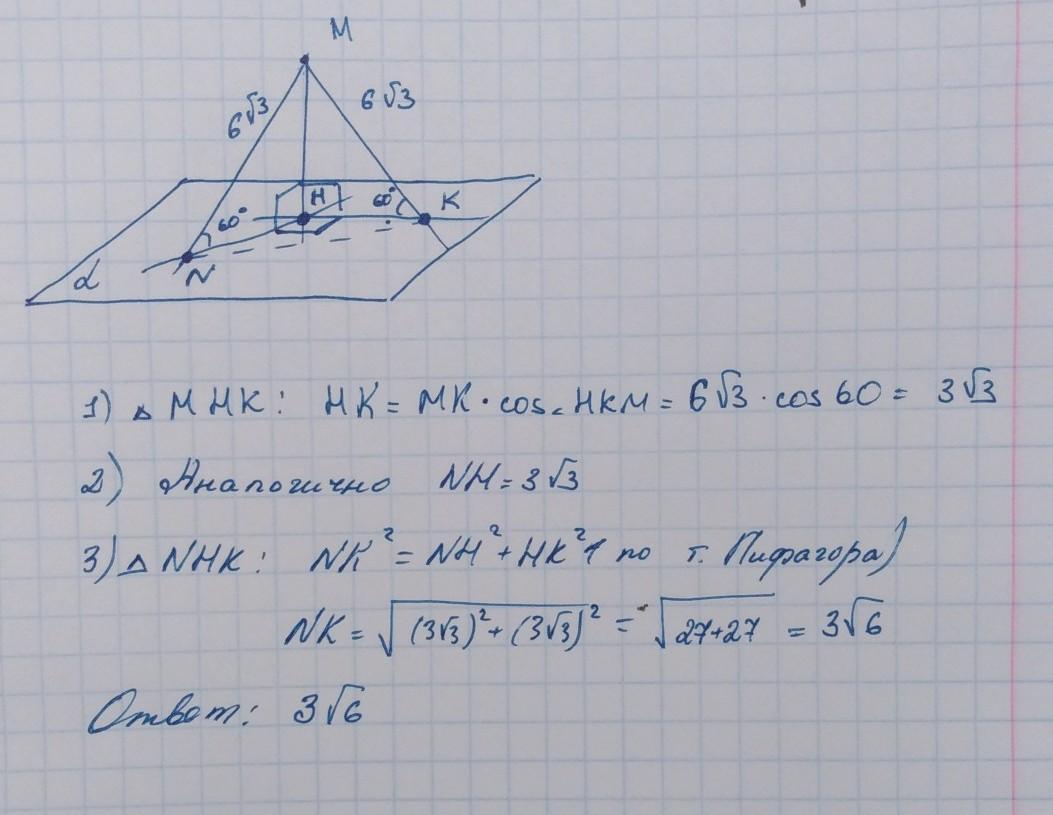 M
6√3
6√3
H
60°
K
60°
N
α
1) △ MHK: HK = MK · cos∠HKM = 6√3 · cos 60 = 3√3
2) Аналогично NH = 3√3
3) △ NHK: NK² = NH² + HK² (по т. Пифагора)
NK = √((3√3)² + (3√3)²) = √(27+27) = 3√6
Ответ: 3√6